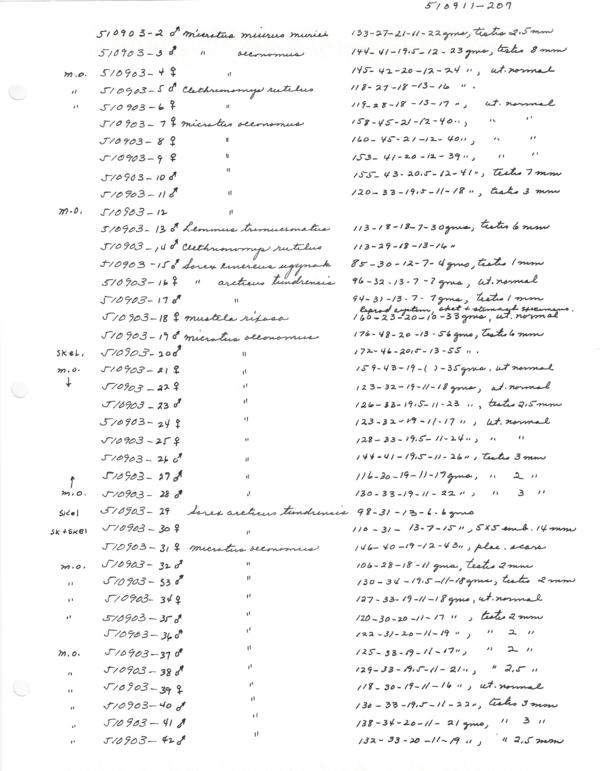 510911-207
510903-2 ♂ Microtus miurus muriei 133-27-21-11-22 gms, testis 2.5 mm
510903-3 ♂ " oeconomus 144-41-19.5-12-23 gms, testes 8 mm
m.o. 510903-4 ♀ " 145-42-20-12-24 ", ut. normal
" 510903-5 ♂ Clethrionomys rutilus 118-27-18-13-16 " .
" 510903-6 ♀ " 119-28-18-13-17 ", ut. normal
510903-7 ♀ Microtus oeconomus 158-45-21-12-40 ", " "
510903-8 ♀ " 160-45-21-12-40 ", " "
510903-9 ♀ " 153-41-20-12-39 ", " "
510903-10 ♂ " 155-43-20.5-12-41 ", testes 7 mm
510903-11 ♂ " 120-33-19.5-11-18 ", testes 3 mm
m.o. 510903-12 "
510903-13 ♂ Lemmus trimucronatus 113-18-18-7-30 gms, testes 6 mm
510903-14 ♂ Clethrionomys rutilus 113-29-18-13-16 "
510903-15 ♂ Sorex cinereus ugyunak 85-30-12-7-4 gms, testes 1 mm
510903-16 ♀ " arcticus tundrensis 96-32-13-7-7 gms, ut. normal
510903-17 ♂ " 94-31-13-7-7 gms, testes 1 mm
reprod system, skel + stomach specimens.
510903-18 ♀ Mustela rixosa 160-23-20-10-33 gms, ut. normal
510903-19 ♂ Microtus oeconomus 176-48-20-13-56 gms, testes 6 mm
SKEL. 510903-20 ♂ " 172-46-20.5-13-55 " .
m.o. 510903-21 ♀ " 159-43-19-( )-35 gms, ut normal
↓ 510903-22 ♀ " 123-32-19-11-18 gms, ut. normal
510903-23 ♂ " 126-33-19.5-11-23 ", testes 2.5 mm
510903-24 ♀ " 123-32-19-11-17 ", ut. normal
510903-25 ♀ " 128-33-19.5-11-24 ", " "
510903-26 ♂ " 144-41-19.5-11-26 ", testes 3 mm
↑ 510903-27 ♂ " 116-30-19-11-17 gms, " 2 "
m.o. 510903-28 ♂ " 130-33-19-11-22 ", " 3 "
SKel 510903-29 Sorex arcticus tundrensis 98-31-13-6.6 gms
SK+SKel 510903-30 ♀ " 110-31-13-7-15 ", 5x5 emb. 14 mm
510903-31 ♀ Microtus oeconomus 146-40-19-12-43 ", plac. scars
m.o. 510903-32 ♂ " 106-28-18-11 gms, testes 2 mm
" 510903-33 ♂ " 130-34-19.5-11-18 gms, testes 2 mm
" 510903-34 ♀ " 127-33-19-11-18 gms, ut. normal
" 510903-35 ♂ " 120-30-20-11-17 ", testes 2 mm
510903-36 ♂ " 122-31-20-11-19 ", " 2 "
m.o. 510903-37 ♂ " 125-33-19-11-17 ", " 2 "
" 510903-38 ♂ " 129-33-19.5-11-21 ", " 2.5 "
" 510903-39 ♀ " 118-30-19-11-16 ", ut. normal
" 510903-40 ♂ " 130-33-19.5-11-22 ", testes 3 mm
" 510903-41 ♂ " 138-34-20-11-21 gms, " 3 "
" 510903-42 ♂ " 132-33-20-11-19 ", " 2.5 mm